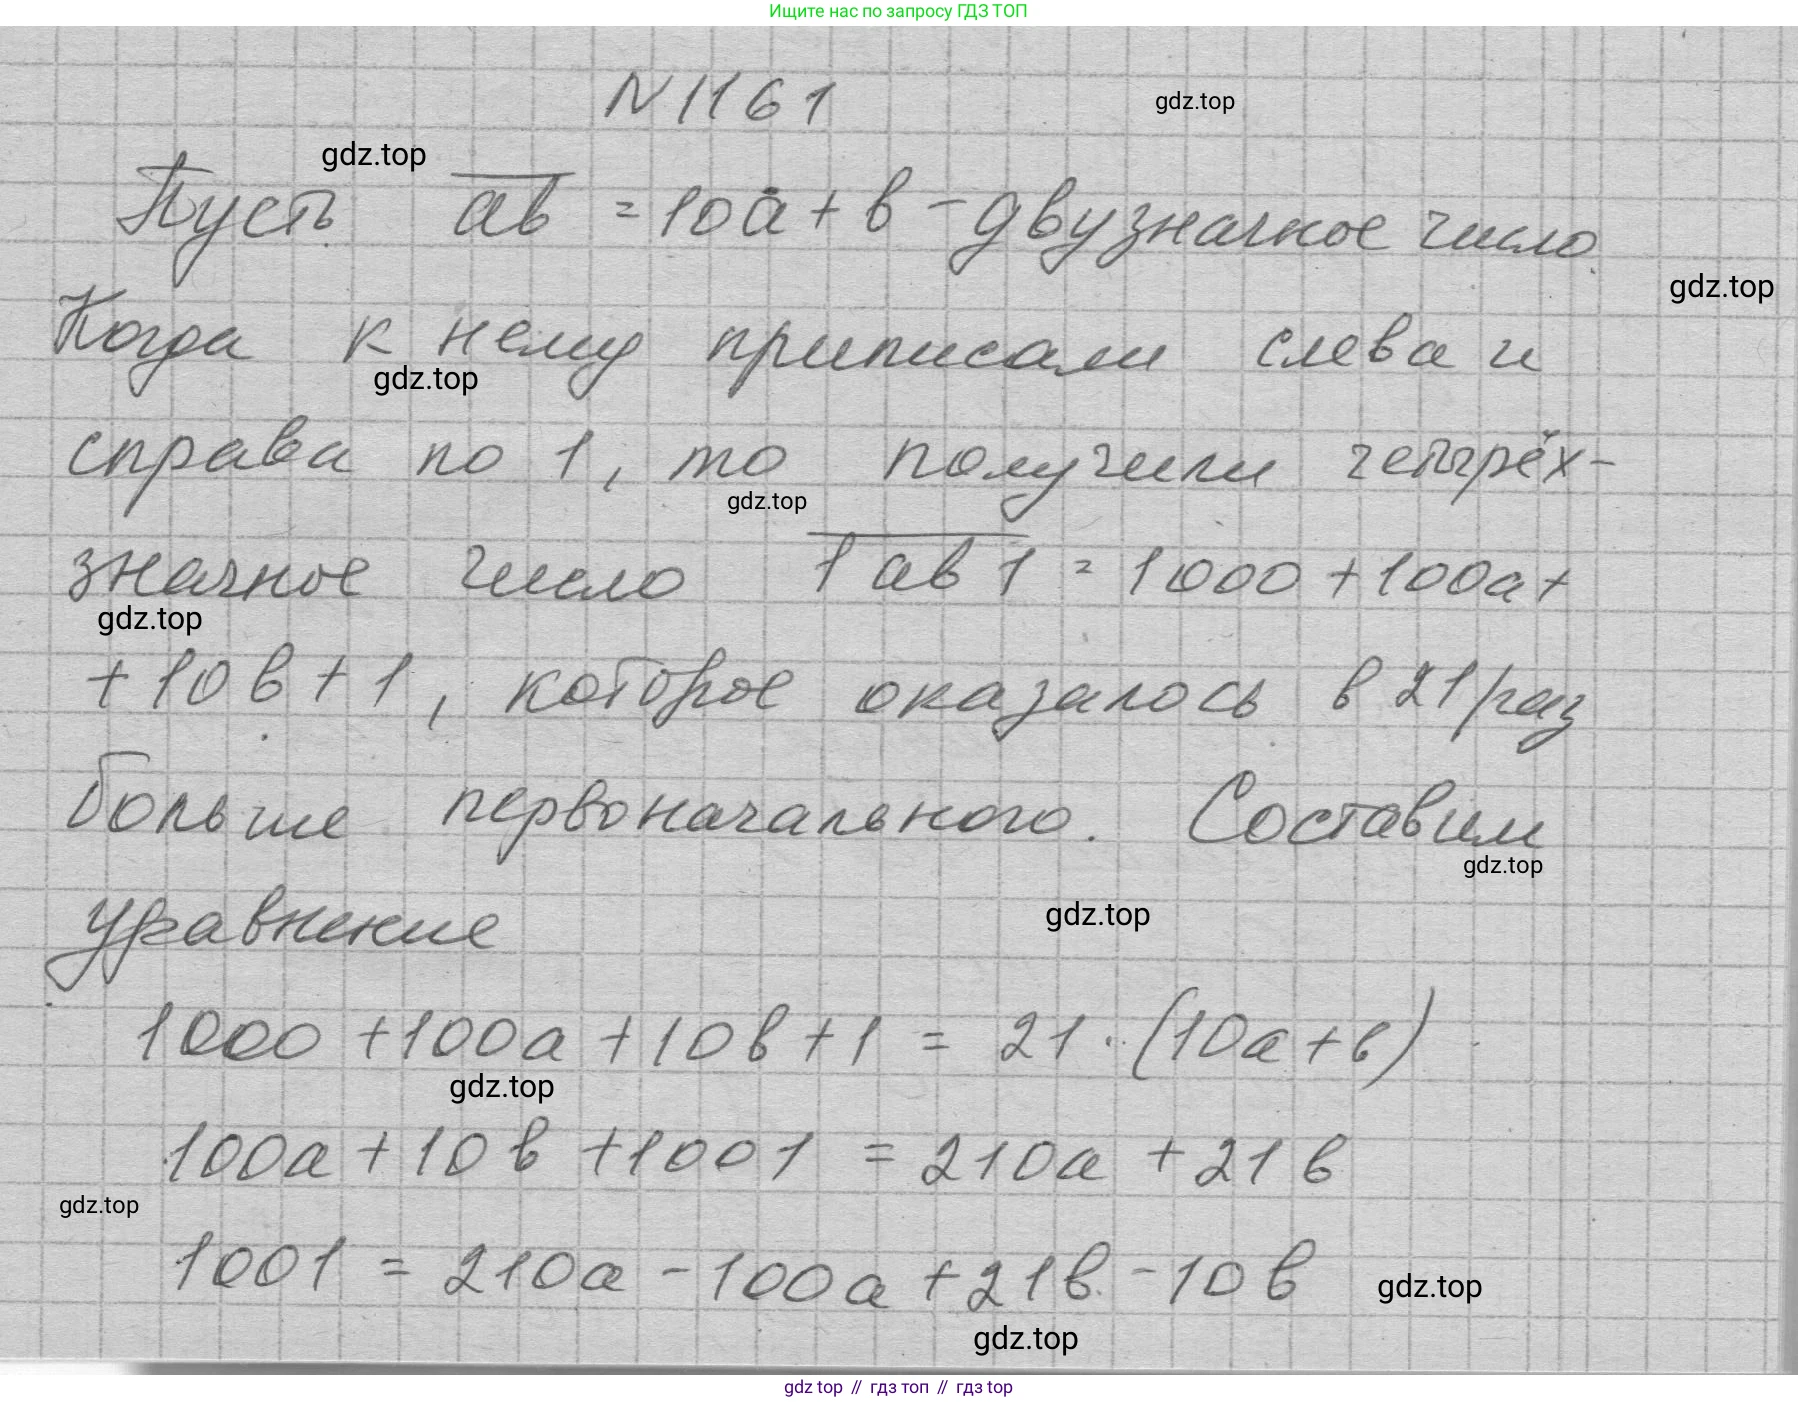 Ищите нас по запросу ГДЗ ТОП
N 1161
gdz.top
gdz.top
Пусть ab = 10a + b - двузначное число.
gdz.top
Когда к нему приписали слева и
gdz.top
справа по 1, то получили четырёх-
gdz.top
значное число 1ab1 = 1000 + 100a +
gdz.top
+ 10b + 1, которое оказалось в 21 раз
больше первоначального. Составим
gdz.top
уравнение
gdz.top
1000 + 100a + 10b + 1 = 21 · (10a + b)
gdz.top
100a + 10b + 1001 = 210a + 21b
gdz.top
1001 = 210a - 100a + 21b - 10b
gdz.top
gdz.top
gdz top // гдз топ // гдз top